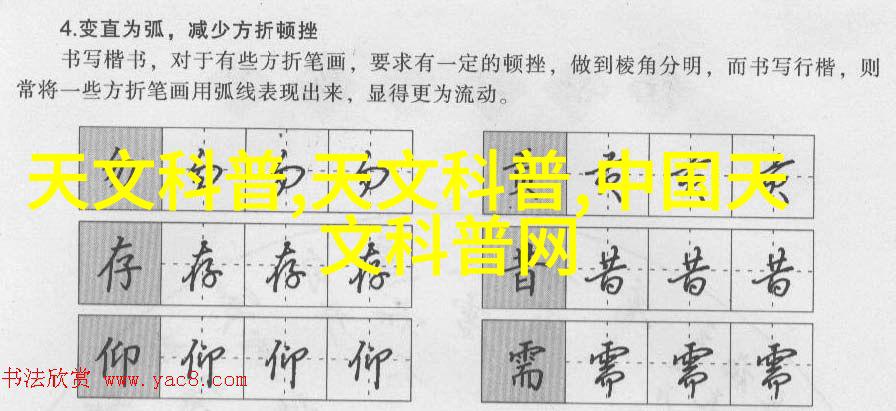 4.变直为弧，减少方折顿挫
书写楷书，对于有些方折笔画，要求有一定的顿挫，做到棱角分明，而书写行楷，则
常将一些方折笔画用弧线表现出来，显得更为流动。
天文科普,天文科普,中国天
文科普网
存 存 存 存 昔 昔 昔 昔
仰 仰 仰 仰 需 需 需 需
书法欣赏 www.yac8.com